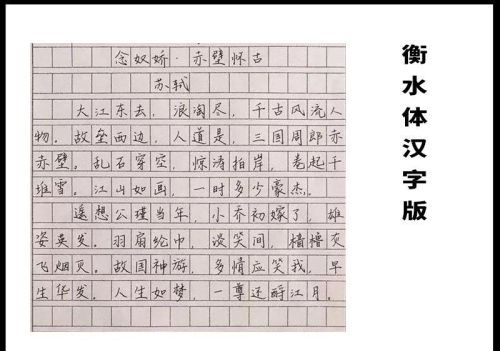 念奴娇·赤壁怀古
苏轼
大江东去，浪淘尽，千古风流人
物。故垒西边，人道是，三国周郎赤
赤壁。乱石穿空，惊涛拍岸，卷起千
堆雪。江山如画，一时多少豪杰。
遥想公瑾当年，小乔初嫁了，雄
姿英发。羽扇纶巾，谈笑间，樯橹灰
飞烟灭。故国神游，多情应笑我，早
生华发。人生如梦，一尊还酹江月。
衡水体汉字版